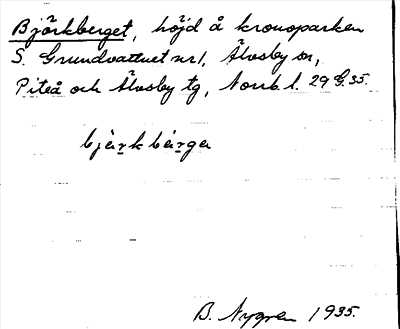 Björkberget, höjd å kronoparken
S. Grundvattnet nr 1, Älvsby sn,
Piteå och Älvsby tg, Norrb. l. 29 G. 35.
bjärkbärga
B. Nygren 1935.